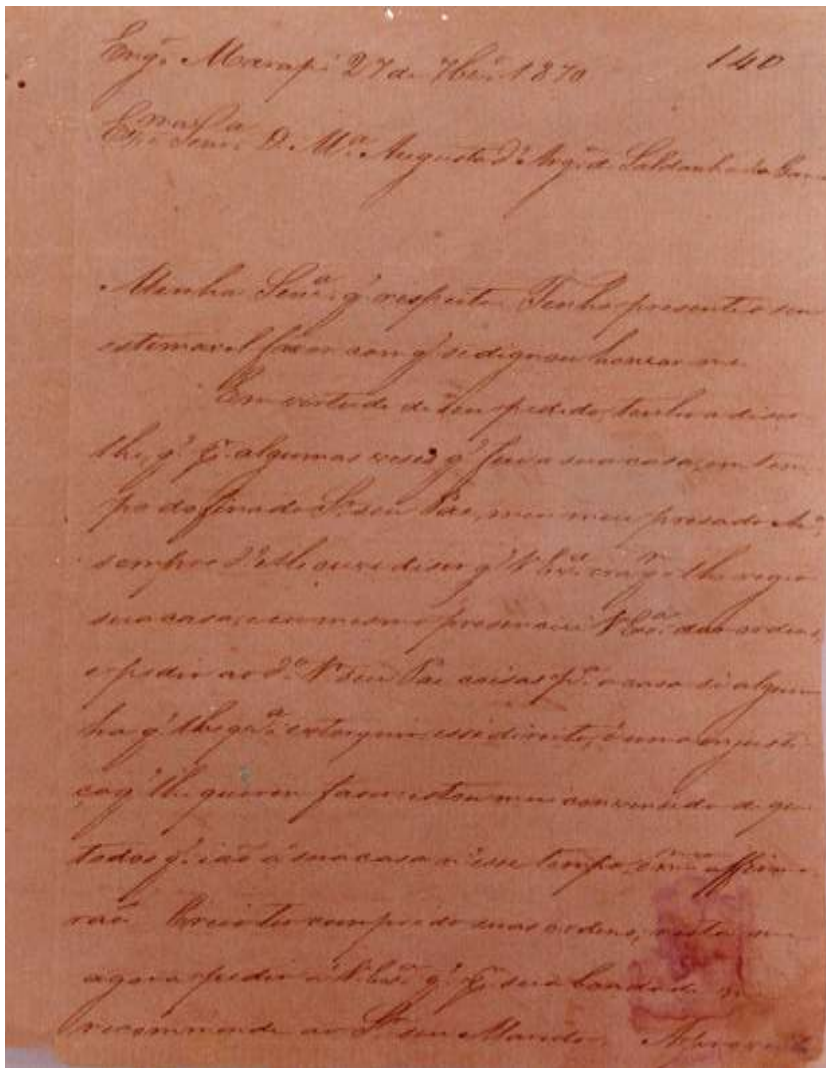 Eng.º Marapi 27 de 7br.º 1870 140
D. M.ª Augusta d' Arg.º de Saldanha da Gama
Minha Senr.ª q' respeito. Tenho presente o seu
estimavel favor com q' se dignou honrar me.
Em virtude de seu pedido, tenho a diser
lhe, q' algumas veses q' fui a sua casa, em tem
po do finado Sr. seu Pae, meu presado
sempre d'elle ouvi diser q' V. Exc.ª era q.m lhe regia
sua casa, e eu mesmo presenciei V. Exc.ª dar ordens,
e pedir ao d.º Sr. seu Pae coisas p.ª a casa si algum
ha q' lhe q.r.ª extorquir esse direito, é uma injusti
ça q' lhe querem faser estou convencido de que
todos q' ião á sua casa n'esse tempo, affirma
rão. Creio ter comprido suas ordens, resta me
agora pedir á V. Exc.ª q' sua bondade me
recommende ao Sr. seu Marido.